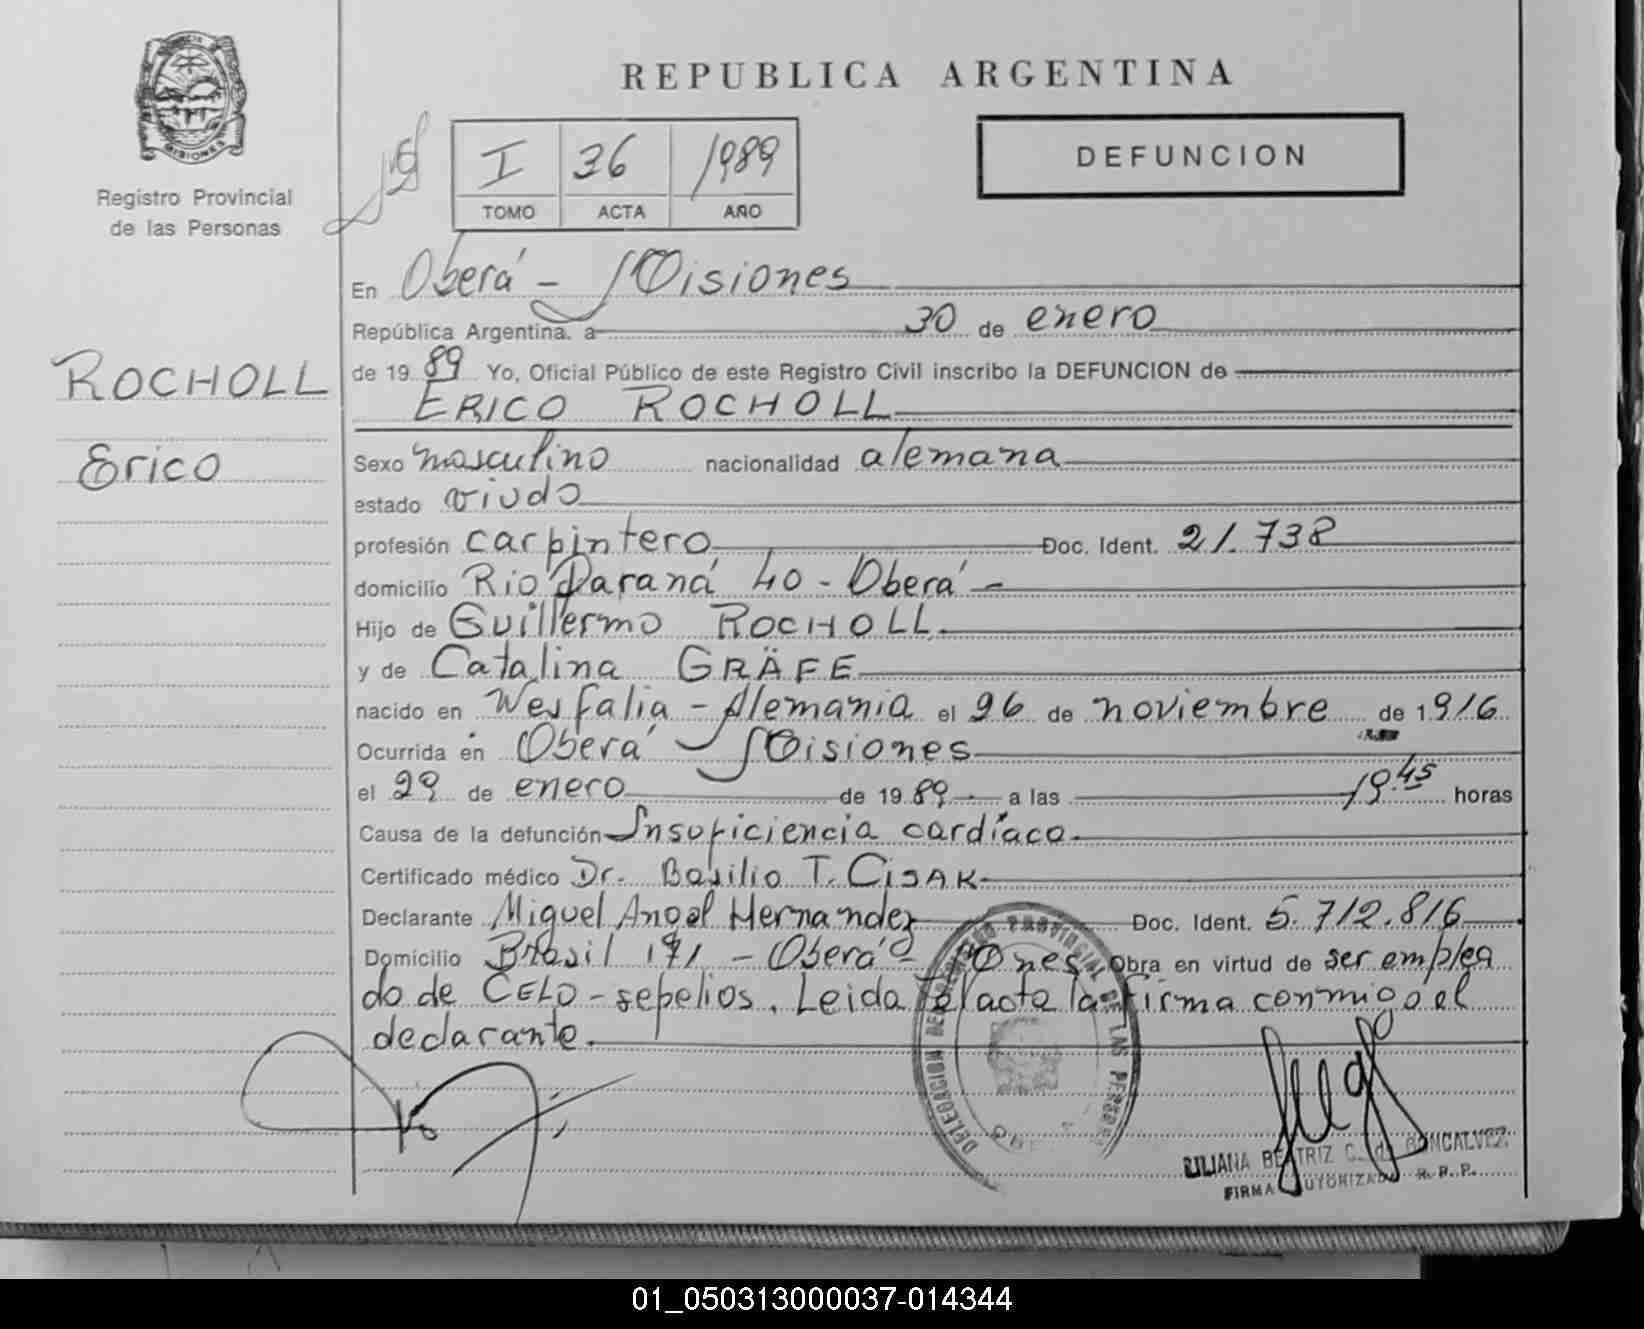 REPUBLICA ARGENTINA
MISIONES
Registro Provincial
de las Personas
I 36 1989
TOMO ACTA AÑO
DEFUNCION
En Oberá - Misiones
República Argentina, a 30 de enero
ROCHOLL
de 19 89 Yo, Oficial Público de este Registro Civil inscribo la DEFUNCION de
ERICO ROCHOLL
Erico
Sexo masculino nacionalidad alemana
estado viudo
profesión carpintero Doc. Ident. 21.738
domicilio Rio Paraná 40 - Oberá -
Hijo de Guillermo ROCHOLL.
y de Catalina GRÄFE
nacido en Wesfalia - Alemania el 26 de noviembre de 1916
Ocurrida en Oberá - Misiones
el 29 de enero de 1989 a las 19.45 horas
Causa de la defunción Insuficiencia cardíaca.
Certificado médico Dr. Basilio T. CISAK
Declarante Miguel Angel Hernandez Doc. Ident. 5.712.816
Domicilio Brasil 171 - Oberá - Mnes. Obra en virtud de ser emplea
do de CELO - sepelios. Leida el acta la firma conmigo el
declarante.
DELEGACION DEL REGISTRO PROVINCIAL DE LAS PERSONAS
LILIANA BEATRIZ C. de GONCALVEZ
FIRMA AUTORIZADA R. P. P.
01_050313000037-014344